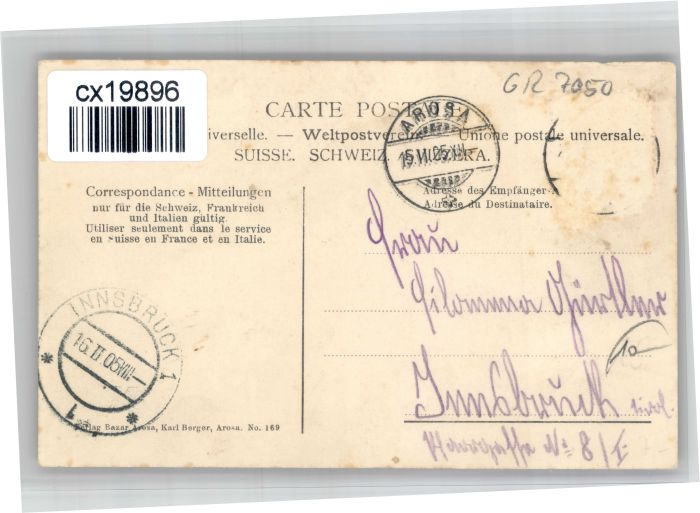 cx19896
GR 7050
CARTE POSTALE
iverselle. — Weltpostverein — Unione postale universale.
SUISSE. SCHWEIZ. SVIZZERA.
AROSA
15.II.05.VII
Correspondance - Mitteilungen
nur für die Schweiz, Frankreich
und Italien gültig.
Utiliser seulement dans le service
en Suisse en France et en Italie.
Adresse des Empfänger
Adresse du Destinataire.
Frau
Filomena
Innsbruck Tirol.
No 8/I
10
INNSBRUCK 1
16 II 05 VIII
Verlag Bazar Arosa, Karl Berger, Arosa. No. 169